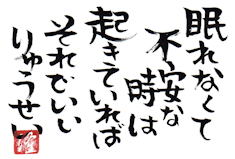 眠れなくて
不安な
時は
起きていれば
それでいい
りゅうせい